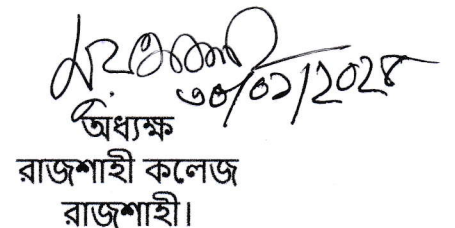 ৩০/০১/২০২৪
অধ্যক্ষ
রাজশাহী কলেজ
রাজশাহী।